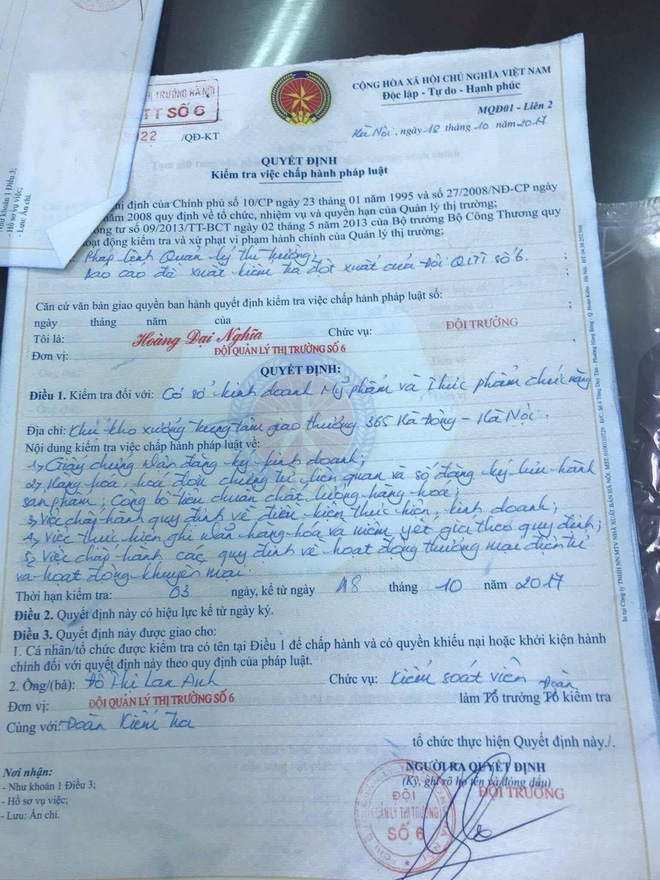 TRƯỜNG HÀ NỘI
TT SỐ 6
22 /QĐ-KT
CỘNG HÒA XÃ HỘI CHỦ NGHĨA VIỆT NAM
Độc lập - Tự do - Hạnh phúc
MQĐ01 - Liên 2
Hà Nội, ngày 18 tháng 10 năm 2017
QUYẾT ĐỊNH
Kiểm tra việc chấp hành pháp luật
hị định của Chính phủ số 10/CP ngày 23 tháng 01 năm 1995 và số 27/2008/NĐ-CP ngày
năm 2008 quy định về tổ chức, nhiệm vụ và quyền hạn của Quản lý thị trường;
ông tư số 09/2013/TT-BCT ngày 02 tháng 5 năm 2013 của Bộ trưởng Bộ Công Thương quy
oạt động kiểm tra và xử phạt vi phạm hành chính của Quản lý thị trường;
Pháp lệnh Quản lý thị trường;
Báo cáo đề xuất kiểm tra đột xuất của Đội QLTT số 6.
Căn cứ văn bản giao quyền ban hành quyết định kiểm tra việc chấp hành pháp luật số:
ngày tháng năm của
Tôi là: Hoàng Đại Nghĩa Chức vụ: ĐỘI TRƯỞNG
Đơn vị: ĐỘI QUẢN LÝ THỊ TRƯỜNG SỐ 6
QUYẾT ĐỊNH:
Điều 1. Kiểm tra đối với: Cơ sở kinh doanh Mỹ phẩm và Thực phẩm chức năng
Địa chỉ: Khu kho xưởng trung tâm giao thương 365 Hà Đông - Hà Nội.
Nội dung kiểm tra việc chấp hành pháp luật về:
1, Giấy chứng nhận đăng ký kinh doanh;
2, Hàng hóa, hóa đơn chứng từ liên quan và số đăng ký lưu hành
sản phẩm; Công bố tiêu chuẩn chất lượng hàng hóa;
3, Việc chấp hành quy định về điều kiện thực hiện, kinh doanh;
4, Việc thực hiện ghi nhãn hàng hóa và niêm yết giá theo quy định;
5, Việc chấp hành các quy định về hoạt động thương mại điện tử
và hoạt động khuyến mại.
Thời hạn kiểm tra: 03 ngày, kể từ ngày 18 tháng 10 năm 2017
Điều 2. Quyết định này có hiệu lực kể từ ngày ký.
Điều 3. Quyết định này được giao cho:
1. Cá nhân/tổ chức được kiểm tra có tên tại Điều 1 để chấp hành và có quyền khiếu nại hoặc khởi kiện hành
chính đối với quyết định này theo quy định của pháp luật.
2. Ông/(bà): Đỗ Thị Lan Anh Chức vụ: Kiểm soát viên
Đơn vị: ĐỘI QUẢN LÝ THỊ TRƯỜNG SỐ 6 làm Tổ trưởng Tổ kiểm tra
Đoàn
Cùng với: Đoàn Kiểm tra
tổ chức thực hiện Quyết định này./.
Nơi nhận:
- Như khoản 1 Điều 3;
- Hồ sơ vụ việc;
- Lưu: Ấn chỉ.
NGƯỜI RA QUYẾT ĐỊNH
(Ký, ghi rõ họ tên và đóng dấu)
ĐỘI TRƯỞNG
ĐỘI
QUẢN LÝ THỊ TRƯỜNG
SỐ 6
- Như khoản 1 Điều 3;
- Hồ sơ vụ việc;
- Lưu: Ấn chỉ.